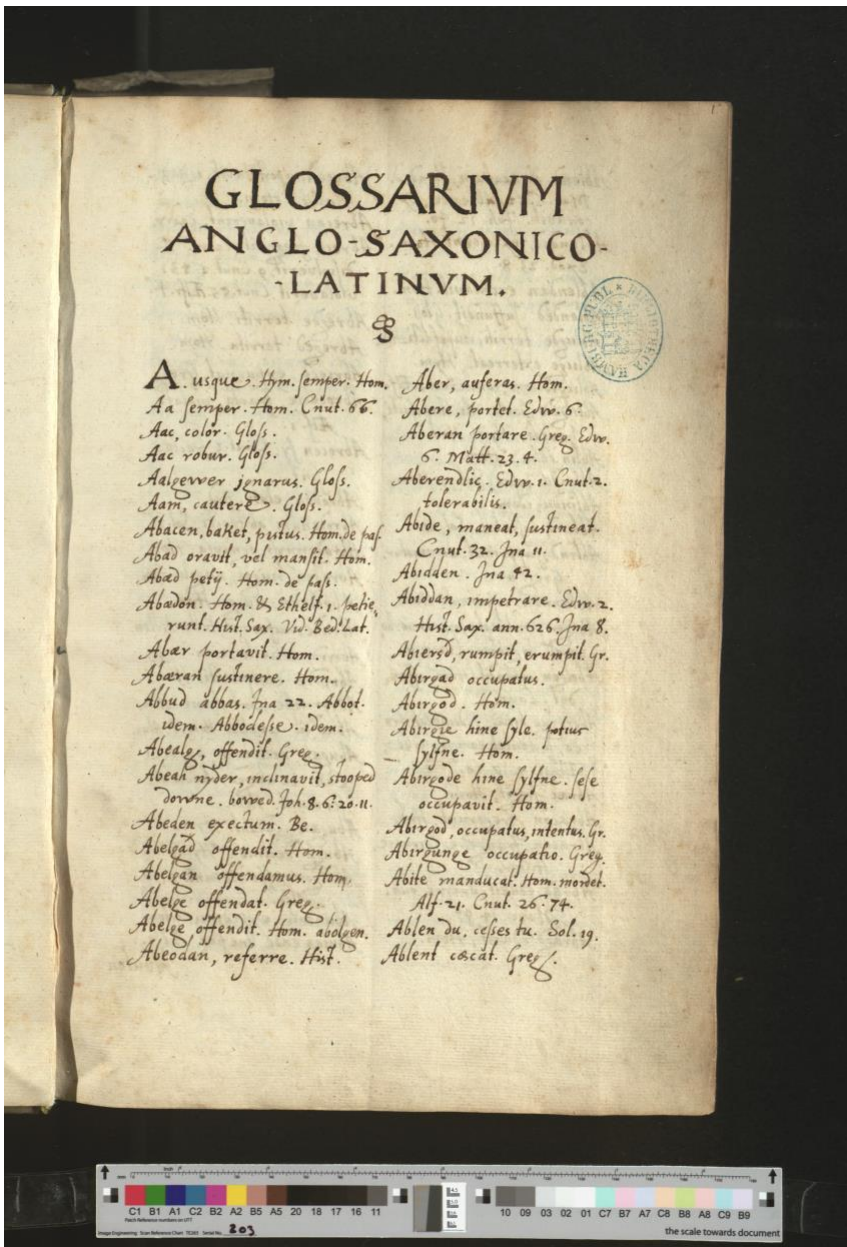 1
GLOSSARIVM
ANGLO-SAXONICO-
-LATINVM.
BIBLIOTHECA HAMBURG. PUBL.
A. usque. Hym. semper. Hom.
Aa semper. Hom. Cnut. 66.
Aac, color. Gloss.
Aac robur. Gloss.
Aalgewer ignarus. Gloss.
Aam, cautere. Gloss.
Abacen, baket, pistus. Hom. de pas.
Abad oravit, vel mansit. Hom.
Abæd petij. Hom. de pass.
Abædon. Hom. & Ethelf. 1. petie,
runt. Hist. Sax. Vid. Bed. Lat.
Abær portavit. Hom.
Abæran sustinere. Hom.
Abbud abbas. Jna 22. Abbot.
idem. Abbodesse. idem.
Abealg, offendit. Greg.
Abeah nyder, inclinavit, stooped
downe. bowed. Joh. 8. 6: 20. 11.
Abeden exectum. Be.
Abelgad offendit. Hom.
Abelgan offendamus. Hom.
Abelge offendat. Greg.
Abelge offendit. Hom. abolgen.
Abeodan, referre. Hist.
Aber, auferas. Hom.
Abere, portet. Edw. 6.
Aberan portare. Greg. Edw.
6. Matt. 23. 4.
Aberendlic. Edw. 1. Cnut. 2.
tolerabilis.
Abide, maneat, sustineat.
Cnut. 32. Jna 11.
Abidden. Jna 42.
Abiddan, impetrare. Edw. 2.
Hist. Sax. ann. 626. Jna 8.
Abiersd, rumpit, erumpit. Gr.
Abirgad occupatus.
Abirgod. Hom.
Abirgie hine syle. potius
sylfne. Hom.
Abirgode hine sylfne. sese
occupavit. Hom.
Abirgod, occupatus, intentus. Gr.
Abirgunge occupatio. Greg.
Abite manducat. Hom. mordet.
Alf. 21. Cnut. 26. 74.
Ablen du, cesses tu. Sol. 19.
Ablent cæcat. Greg.
inch
mm
C1 B1 A1 C2 B2 A2 B5 A5 20 18 17 16 11
10 09 03 02 01 C7 B7 A7 C8 B8 A8 C9 B9
Patch Reference numbers on UTT
Image Engineering Scan Reference Chart TE263 Serial No. 203
the scale towards document